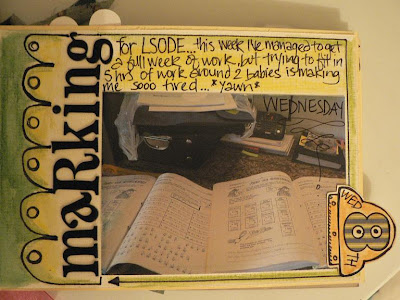 maRking
for LSODE...this week I've managed to get
a full week of work, but trying to fit in
5 hrs of work around 2 babies is making
me sooo tired... *yawn*
WEDNESDAY
WED
8
TH